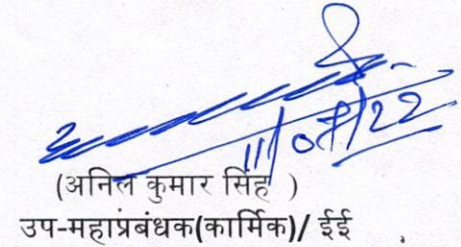 11/07/22
(अनिल कुमार सिंह )
उप-महाप्रंबंधक(कार्मिक)/ ईई